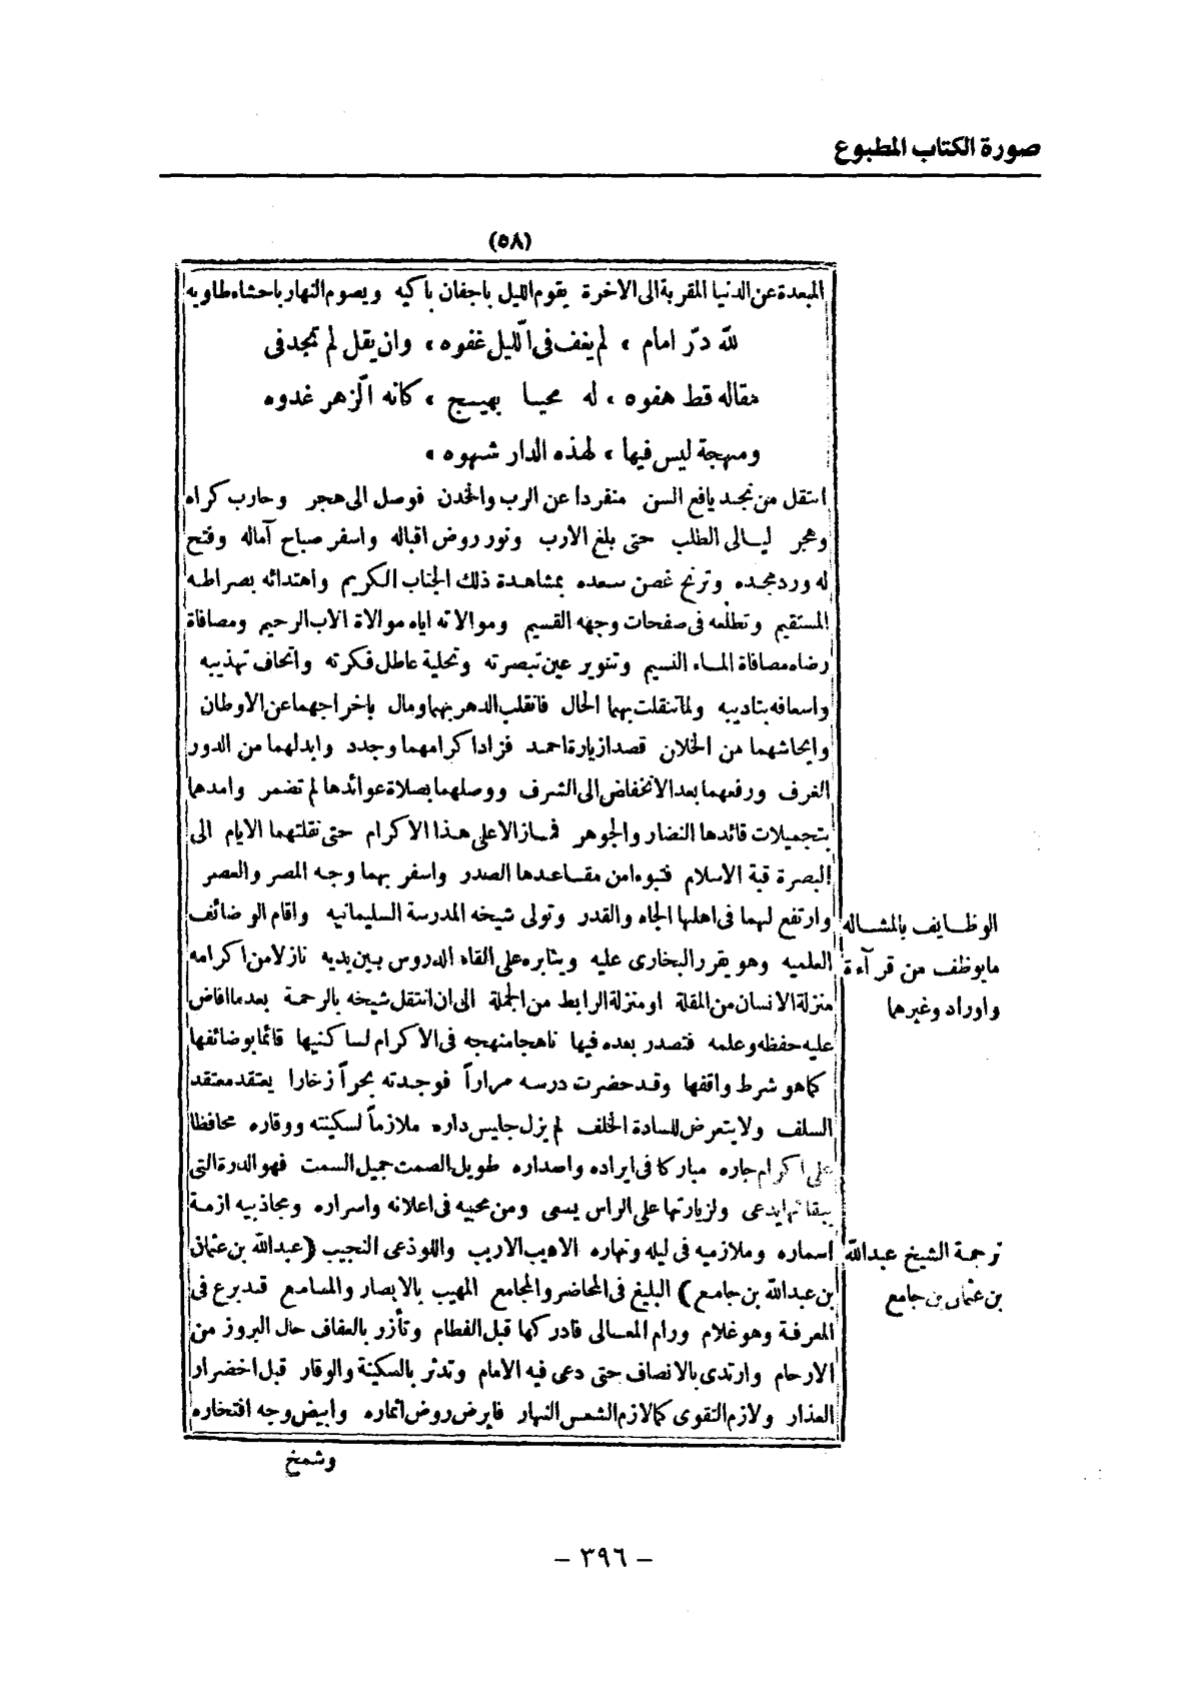 صورة الكتاب المطبوع
(٥٨)
المبعدة عن الدنيا المقربة الى الاخرة يقوم الليل باجفان باكيه ويصوم النهار باحشاء طاويه
لله درّ امام ، لم يغف فى الّليل غفوه ، وان يقل لم تجد فى
مقاله قط هفوه ، له محيا بهيج ، كانه الّزهر غدوه
ومهجة ليس فيها ، لهذه الدار شهوه ،
انتقل من نجد يافع السن منفردا عن الرب والخدن فوصل الى هجر وحارب كراه
وهجر ليالى الطلب حتى بلغ الارب ونور روض اقباله واسفر صباح آماله وفتح
له ورد مجده وترنح غصن سعده بمشاهدة ذلك الجناب الكريم واهتدائه بصراطه
المستقيم وتطلعه فى صفحات وجهه القسيم وموالاته اياه موالاة الاب الرحيم ومصافاة
رضاه مصافاة الماء النسيم وتنوير عين تبصرته وتحلية عاطل فكرته واتحاف تهذيبه
واسعافه بتاديبه ولما تنقلت بهما الحال فانقلب الدهر بهما ومال باخراجهما عن الاوطان
وايحاشهما من الخلان قصدا زيارة احمد فزادا كرامهما وجدد وابدلهما من الدور
الغرف ورفعهما بعد الانخفاض الى الشرف ووصلهما بصلاة عوائدها لم تضمر وامدها
بتجميلات قائدها النضار والجوهر فمازالا على هذا الاكرام حتى نقلتهما الايام الى
البصرة قبة الاسلام فتبوءا من مقاعدها الصدر واسفر بهما وجه المصر والعصر
وارتفع لهما فى اهلها الجاه والقدر وتولى شيخه المدرسة السليمانيه واقام الوضائف
الوظايف بالمشاله
العلميه وهو يقرر البخارى عليه ويثابره على القاء الدروس بين يديه نازلا من اكرامه
مايوظف من قرآءة
منزلة الانسان من المقلة او منزلة الرابط من الجملة الى ان انتقل شيخه بالرحمة بعد ما افاض
واوراد وغيرها
عليه حفظه وعلمه فتصدر بعده فيها ناهجا منهجه فى الاكرام لساكنيها قائما بوضائفها
كما هو شرط واقفها وقد حضرت درسه مراراً فوجدته بحراً زخارا يعتقد معتقد
السلف ولا يتعرض للسادة الخلف لم يزل جليس داره ملازماً لسكينته ووقاره محافظا
على اكرام جاره مباركا فى ايراده واصداره طويل الصمت جميل السمت فهو الدرة التى
ببقائها يدعى ولزيارتها على الراس يسعى ومن محبيه فى اعلانه واسراره ومجاذبيه ازمة
اسماره وملازميه فى ليله ونهاره الاديب الاريب واللوذعى النجيب (عبدالله بن عثمان
ترجمة الشيخ عبدالله
بن عبدالله بن جامع) البليغ فى المحاضر والمجامع المهيب بالابصار والمسامع قد برع فى
بن عثمان بن جامع
المعرفة وهو غلام ورام المعالى فادركها قبل الفطام وتأزر بالعفاف حال البروز من
الارحام وارتدى بالانصاف حتى دعى فيه الامام وتدثر بالسكينة والوقار قبل اخضرار
العذار ولازم التقوى كما لازم الشمس النهار فابرض روض اثماره وابيض وجه افتخاره
وشمخ
- ٣٩٦ -